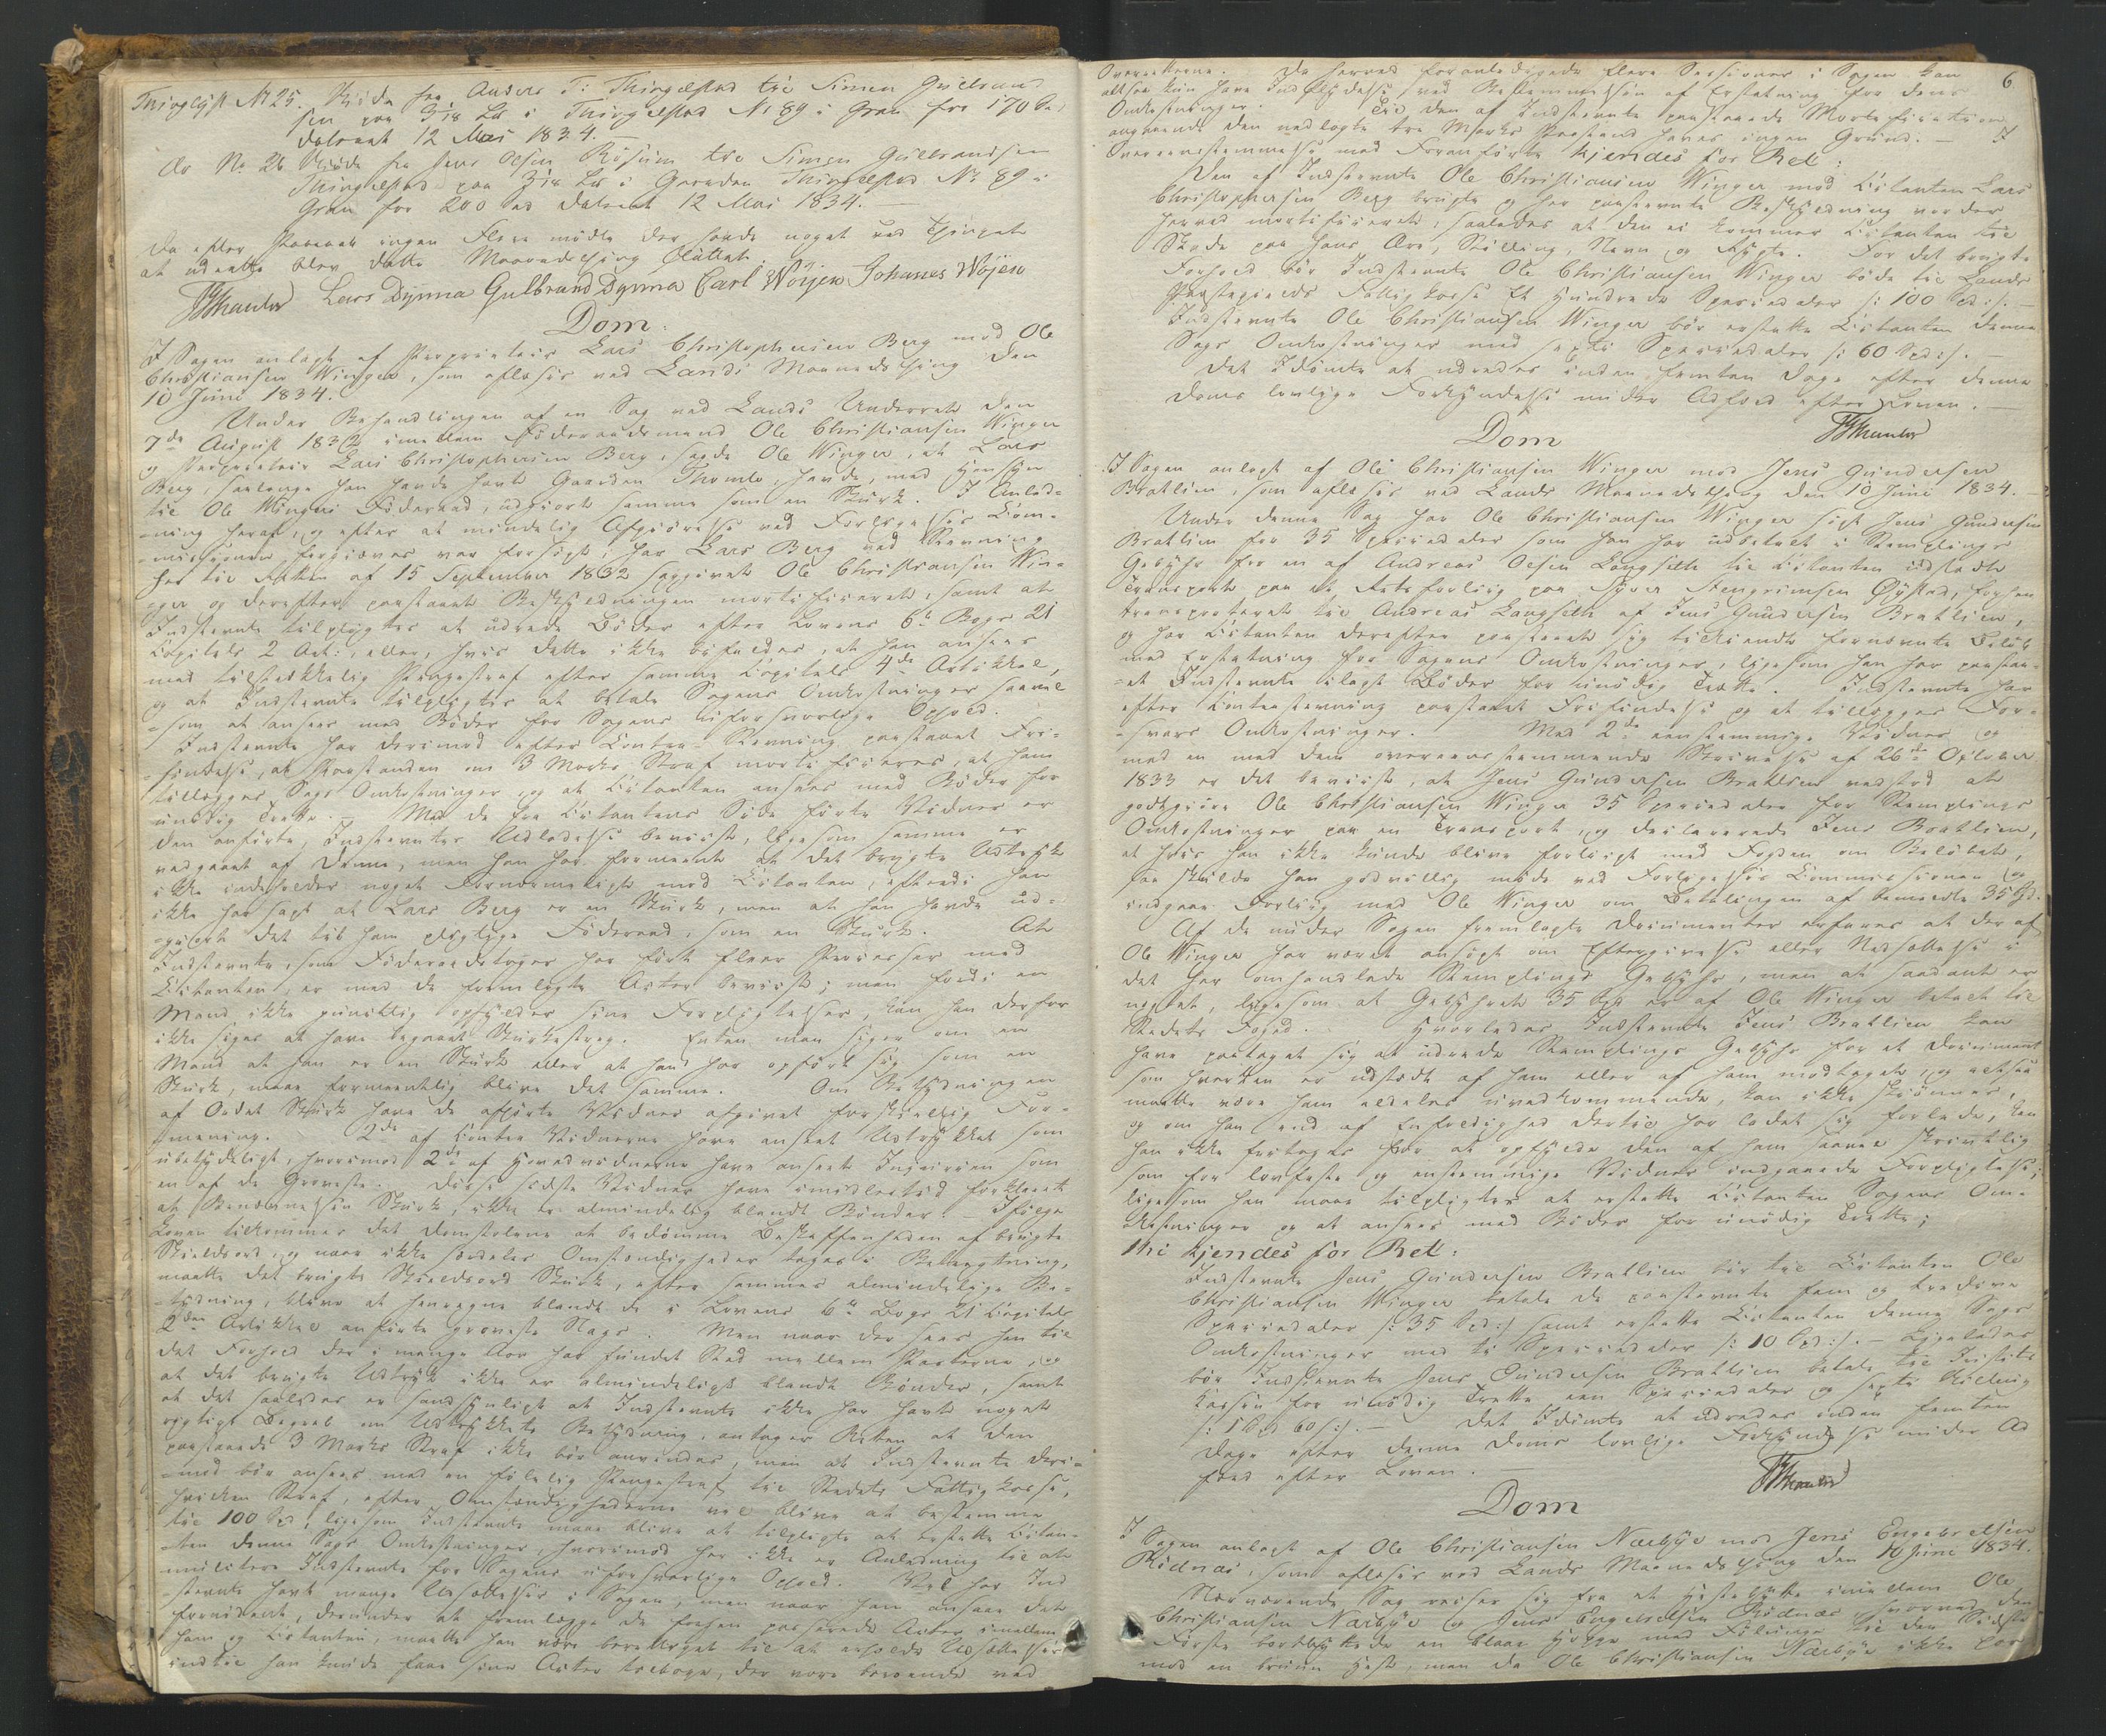 Thinglyst N. 25. Skiøde fra Anders T: Thingelstad til Simen Gulbrand
sen paa 3/18 Lb i Thingelstad N. 89 i Gran for 170 Spd
dateret 12 Mai 1834. –
do No. 26 Skiøde fra Jens Olsen Rosum til Simen Gulbrandsen
Thingelstad paa 3/18 Lb i Gaarden Thingelstad No 89 i
Gran for 200 Spd dateret 12 Mai 1834. –
Da efter Paaraab ingen Flere mødte der havde noget ved Thinget
at udrette blev dette Maanedsthing sluttet.
Lars Dynna Gulbrand Dynna Carl Wøyen Johannes Wøyen
Dom:
I Sagen anlagt af Proprietair Lars Christophersen Berg mod Ole
Christiansen Winger, som aflæses ved Lands Maanedsthing den
10 Juni 1834.
Under Behandlingen af en Sag ved Lands Underret den
7de August 1832 imellem Føderaadsmand Ole Christiansen Winger
og Proprietair Lars Christophersen Berg, sagde Ole Winger, at Lars
Berg, saalænge han havde havt Gaarden Thomle, havde, med Hensyn
til Ole Wingers Føderaad, udgiort samme som en Skurk. I Anled-
-ning heraf, og efter at mindelig Afgiørelse ved Forligelses Com-
-missionen forgieves var forsøgt, har Lars Berg ved Stevning
her til Retten af 15 September 1832 sagsgivet Ole Christiansen Win-
-ger og derefter paastaaet Beskyldningen mortificeret, samt at
Indstevnte tilpligtes at udrede Bøder efter Lovens 6te Bogs 21
Capitels 2 Art:, eller, hvis dette ikke bifaldes, at han ansees
med tilstrækkelig Pengestraf efter samme Capitels 4de Artikkel,
og at Indstevnte tilpligtes at betale Sagens Omkostninger saavel
-som at ansees med Bøder for Sagens uforsvarlige Ophold.
Indstevnte har derimod efter Contra-Stevning paastaaet Fri-
-findelse, at Paastanden om 3 Marks Straf mortificeres, at ham
tillægges Sags Omkostninger, og at Citanten ansees med Bøder for
unødig Trætte. – Med de fra Citantens Side førte Vidner er
den anførte, Indstevntes Udladelse beviist, ligesom samme er
vedgaaet af Denne, men han har formeent at det brugte Udtryk
ikke indeholder noget Fornærmeligt mod Citanten, efterdi han
ikke har sagt at Lars Berg er en Skurk, men at han havde ud-
-giort det til ham pligtige Føderaad, som en Skurk. At
Indstevnte, som Føderaadstager har ført flere Processer mod
Citanten, er med de fremlagte Acter beviist; men fordi en
Mand ikke punktlig opfylder sine Forpligtelser, kan han derfor
ikke siges at have begaaet Skurkestreg. Enten man siger om en
Mand at han er en Skurk eller at han har opført sig som en
Skurk, maae formeentlig blive det samme. Om Betydningen
af Ordet Skurk have de afhørte Vidner afgivet forskjellig For-
-mening. 2de af Contra Vidnerne have anseet Udtrykket som
ubetydeligt, hvorimod 2de af Hovedvidnerne have anseet Injurien som
en af de Groveste. Disse sidste Vidner have imidlertid forklaret
at Benævnelsen Skurk, ikke er almindelig blandt Bønder. – Ifølge
Loven tilkommer det Domstolene at bedømme Beskaffenheden af brugte
Skieldsord, og naar ikke særdeles Omstændigheder tages i Betragtning,
maatte det brugte Skieldsord Skurk, efter sammes almindelige Be-
-tydning, blive at henregne blandt de i Lovens 6te Bogs 21 Capitels
2den Artikkel anførte groveste Slags. Men naar der sees hen til
det Forhold der i mange Aar har fundet Sted mellem Parterne, og
at det brugte Udtryk ikke er almindeligt blandt Bønder, samt
at det saaledes er sandsynligt at Indstevnte ikke har havt noget
rigtigt Begreb om Udtrykkets Betydning, antager Retten at den
paastaaede 3 Marks Straf ikke bør anvendes, men at Indstevnte deri-
-mod bør ansees med en følelig Pengestraf til Stedets Fattigkasse,
hvilken Straf, efter Omstændighederne vil blive at bestemme
til 100 Spd, ligesom Indstevnte maae blive at tilpligte at erstatte Citan-
-ten denne Sags Omkostninger, hvorimod her ikke er Anledning til at
mulctere Indstevnte for Sagens uforsvarlige Ophold. Vel har Ind
-stevnte havt mange Udsættelser i Sagen, men naar han ansaae det
fornødent, derunder at fremlægge de forhen passerede Acter imellem
ham og Citanten, maatte han være berettiget til at erholde Udsættelser
indtil han kunde faae sine Acter tilbage, der vare beroende ved
6
Overretterne. Da herved foranledigede flere Sessioner i Sagen kan
altsaa kun have Indflydelse ved Bestemmelsen af Erstatning for dens
Omkostninger. Til den af Indstevnte paastaaede Mortification
angaaende den nedlagte tre Marks Paastand haves ingen Grund. – I
Overeensstemmelse med Foranførte kjendes for Ret:
Den af Indstevnte Ole Christiansen Winger mod Citanten Lars
Christophersen Berg brugte og her paastevnte Beskyldning vorder
herved mortificeret, saaledes at den ei kommer Citanten til
Skade paa hans Ære, Stilling, Navn og Rygte. For det brugte
Forhold bør Indstevnte Ole Christiansen Winger bøde til Lands
Præstegields Fattigkasse Et Hundrede Speciedaler /: 100 Spd :/. –
Indstevnte Ole Christiansen Winger bør erstatte Citanten denne
Sags Omkostninger med sexti Speciedaler /: 60 Spd :/.
Det Idømte at udredes inden femten Dage efter denne
Doms lovlige Forkyndelse under Adfærd efter Loven. –
Dom
I Sagen anlagt af Ole Christiansen Winger mod Jens Gundersen
Bratlien, som aflæses ved Lands Maanedsthing den 10 Juni 1834. –
Under denne Sag har Ole Christiansen Winger søgt Jens Gundersen
Bratlien for 35 Speciedaler som han har udbetalt i Stemplings
Gebyhr for en af Andreas Olsen Langseth til Citanten udstedte
Transport paa et Retsforliig paa Syver Stengrimsen Øystad, forhen
transporteret til Andreas Langseth af Jens Gundersen Bratlien,
og har Citanten derefter paastaaet sig tilkiendt fornævnte Beløb
med Erstatning for Sagens Omkostninger, ligesom han har paastaa-
-et Indstevnte ilagt Bøder for unødig Trætte. Indstevnte har
efter Contrastevning paastaaet Frifindelse og at tillægges For-
-svars Omkostninger. Med 2de eenstemmige Vidner og
med en med dem overeensstemmende Skrivelse af 26de October
1833 er det beviist, at Jens Gundersen Bratlien vedstod at
godtgiøre Ole Christiansen Winger 35 Speciedaler for Stemplings
Omkostninger paa en Transport, og declarerede Jens Bratlien,
at hvis han ikke kunde blive forligt med Fogden om Beløbet,
saa skulde han godvillig møde ved Forligelses Commissionen og
indgaae Forliig med Ole Winger om Betalingen af bemeldte 35 Spd.
Af de under Sagen fremlagte Documenter erfares at der af
Ole Winger har været ansøgt om Eftergivelse eller Nedsættelse i
det her omhandlede Stemplings Gebyhr, men at saadant er
negtet, ligesom at Gebyhret 35 Spd er af Ole Winger betalt til
Stedets Foged. Hvorledes Indstevnte Jens Bratlien kan
have paataget sig at udrede Stemplings Gebyhr for et Document
som hverken er udstædt af ham eller af ham modtaget, og altsaa
maatte være ham aldeles uvedkommende, kan ikke skiønnes,
og om han end af Enfoldighed dertil har ladet sig forlede, kan
han ikke fritages for at opfylde den af ham saavel skriftlig
som for lovfaste og enstemmige Vidner indgaaede Forpligtelse;
ligesom han maae tilpligtes at erstatte Citanten Sagens Om-
-kostninger og at ansees med Bøder for unødig Trætte;
Thi kjendes for Ret:
Indstevnte Jens Gundersen Bratlien bør til Citanten Ole
Christiansen Winger betale de paastevnte fem og tredive
Speciedaler /: 35 Spd :/ samt erstatte Citanten denne Sags
Omkostninger med ti Speciedaler /: 10 Spd :/. – Ligeledes
bør Indstevnte Jens Gundersen Bratlien betale til Justits
Kassen for unødig Trætte een Speciedaler og sexti Skilling
/: 1 Spd 60 s :/. – Det Idømte at udredes inden femten
Dage efter denne Doms lovlige Forkyndelse under Ad
færd efter Loven. –
Dom
I Sagen anlagt af Ole Christiansen Nærbye mod Jens Engebretsen
Rødnæs, som aflæses ved Lands Maanedsthing den 10 Juni 1834.
Nærværende Sag reiser sig fra et Hestebytte imellem Ole
Christiansen Nærbye og Jens Engebretsen Rødnæs, hvorved den
Første bortbyttede en blaae Hoppe med Føllunge til den Sidste
mod en bruun Hest, men da Ole Christiansen Nærbye ikke har